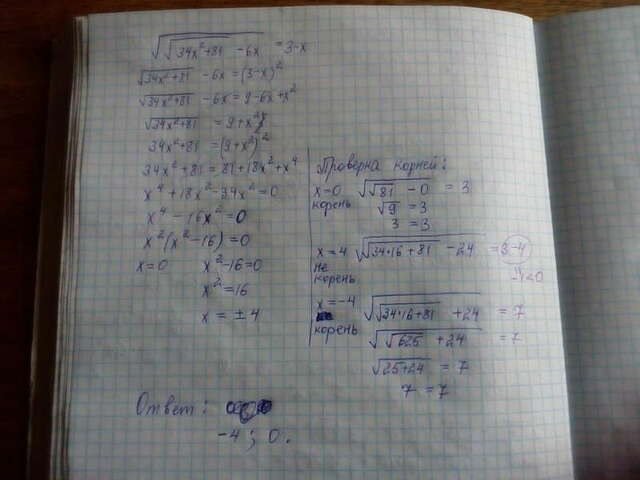 √(√(34x²+81) - 6x) = 3-x
√(34x²+81) - 6x = (3-x)²
√(34x²+81) - 6x = 9-6x+x²
√(34x²+81) = 9+x²
34x²+81 = (9+x²)²
34x²+81 = 81+18x²+x⁴
x⁴+18x²-34x²=0
x⁴-16x²=0
x²(x²-16)=0
x=0 x²-16=0
x²=16
x = ±4
Проверка корней:
x=0 √(√81 - 0) = 3
корень √9 = 3
3 = 3
x=4 √(√(34·16+81) - 24) = 3-4
не -1<0
корень
x=-4 √(√(34·16+81) + 24) = 7
корень √(√625 + 24) = 7
√(25+24) = 7
7 = 7
Ответ:
-4; 0.